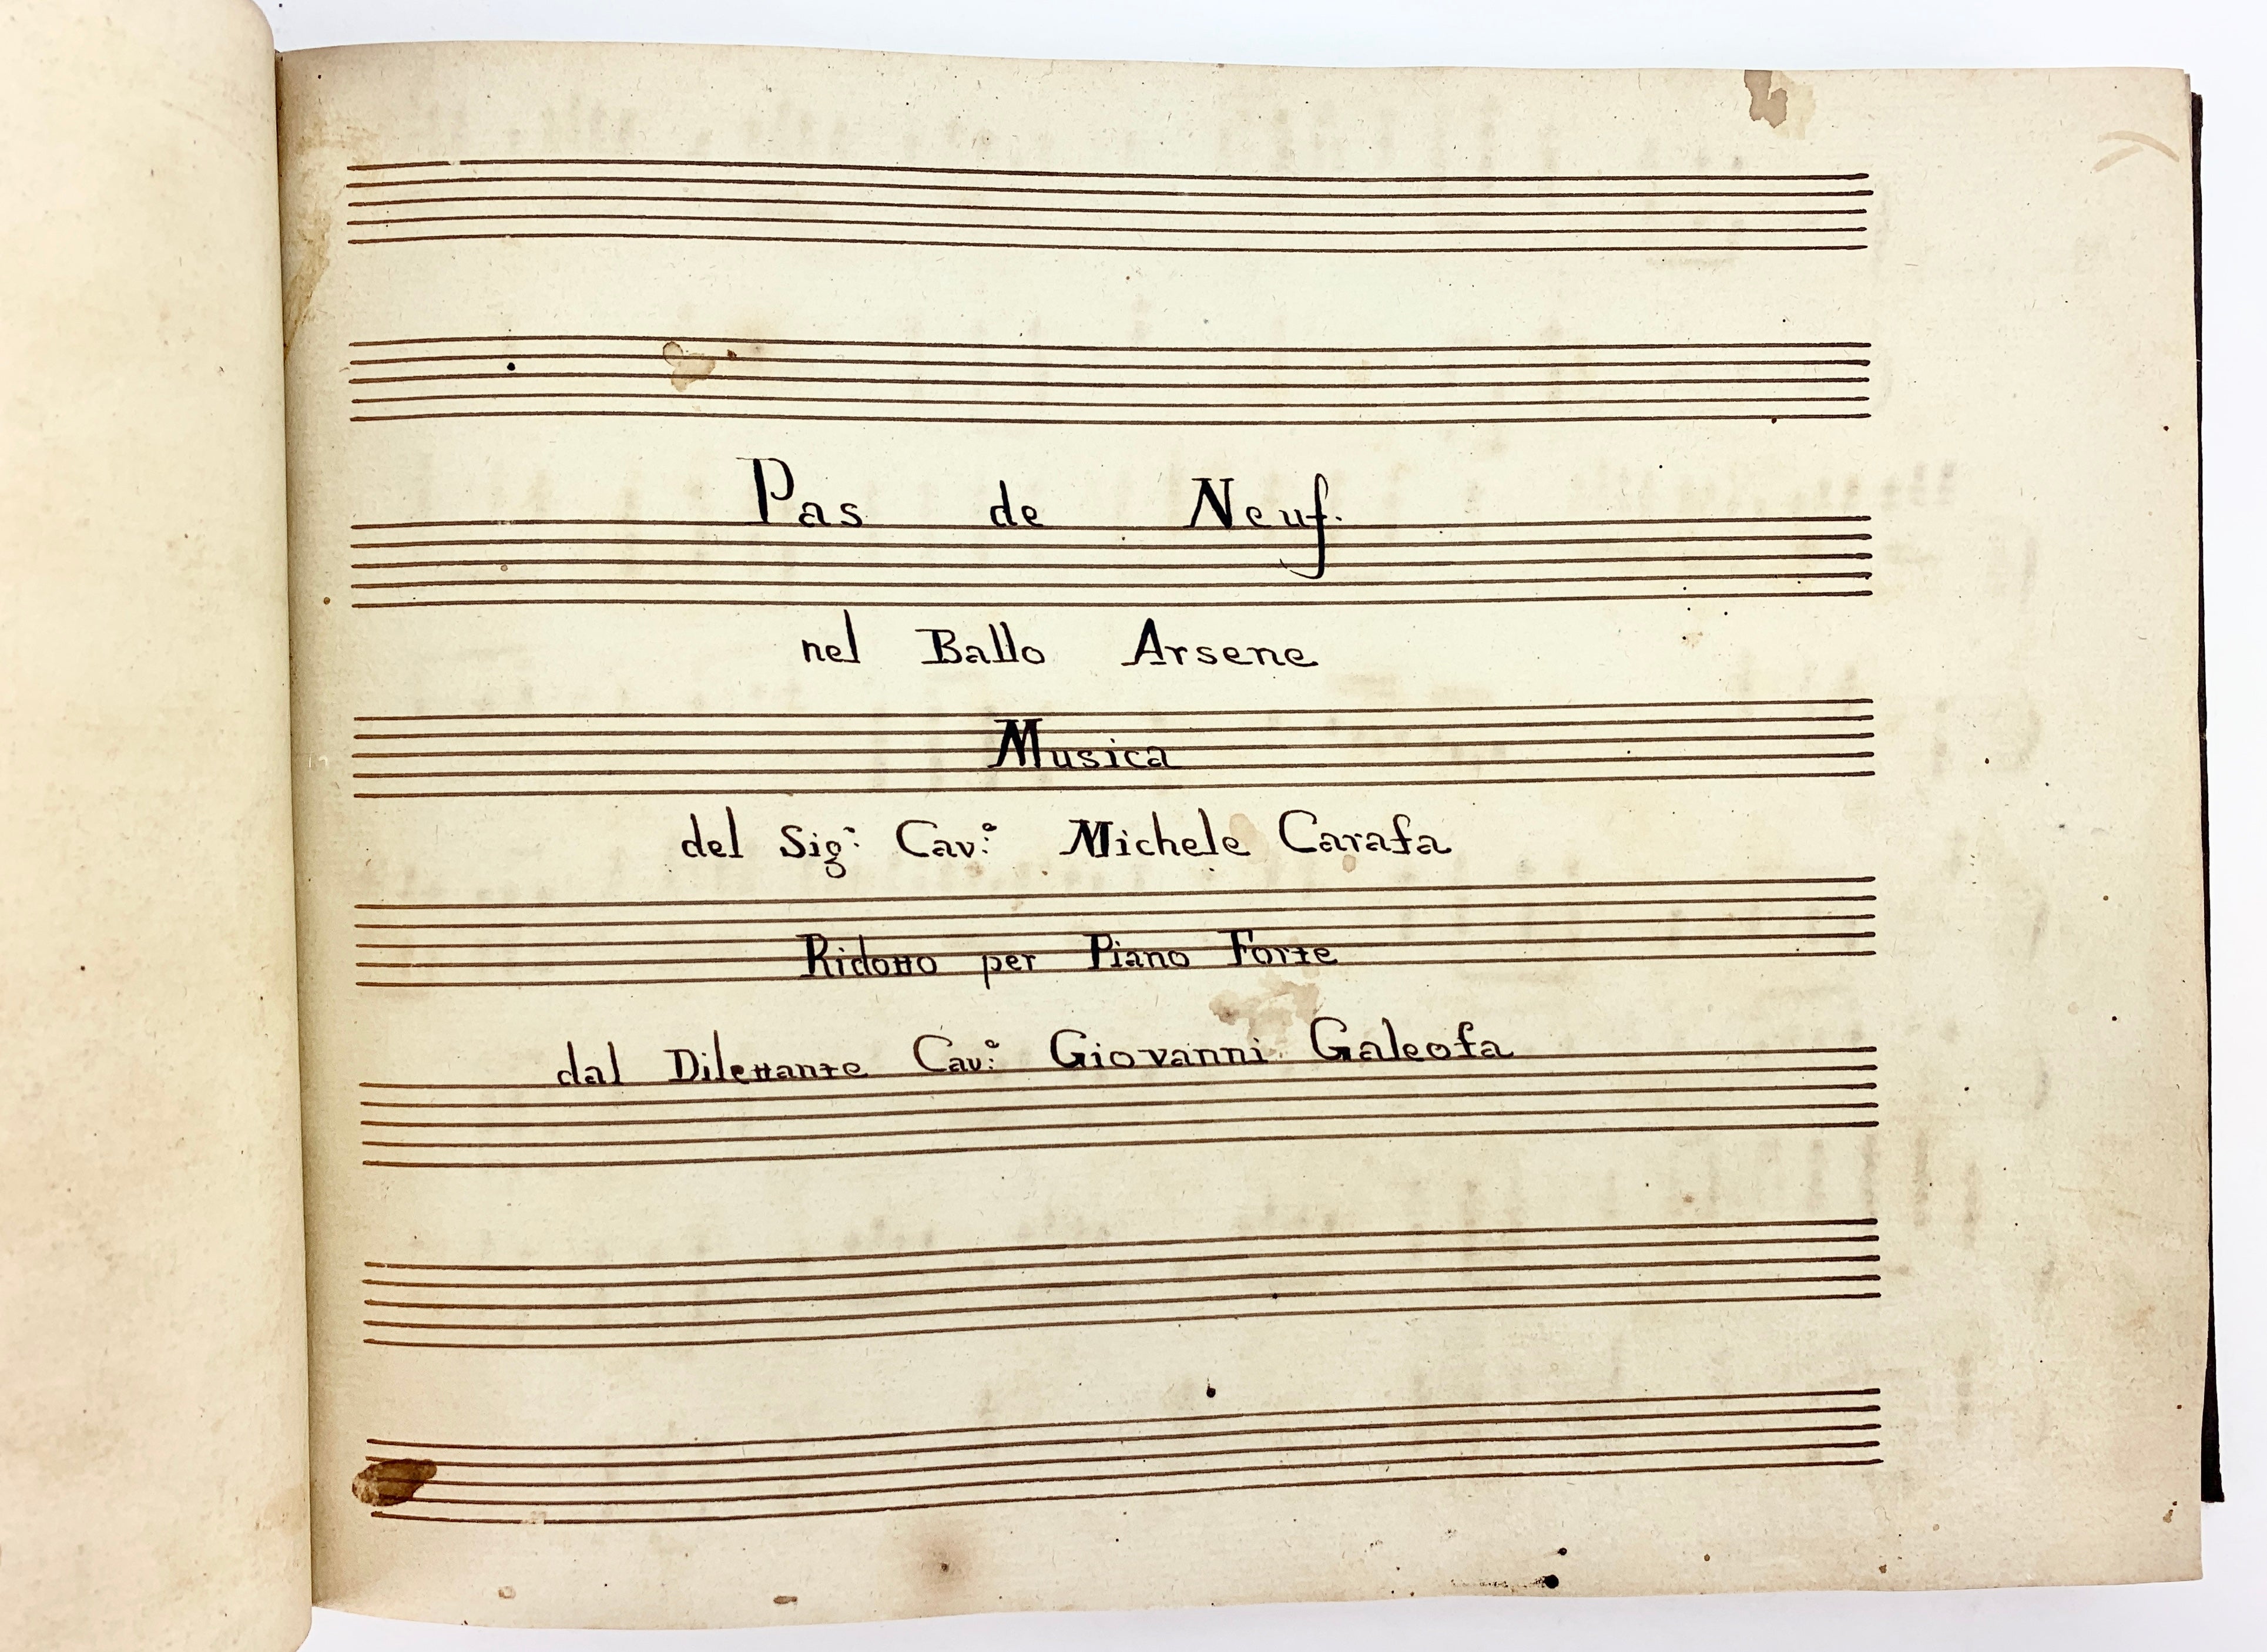 Pas de Neuf.
nel Ballo Arsene
Musica
del Sig.r Cav.e Michele Carafa
Ridotto per Piano Forte
dal Dilettante Cav.e Giovanni Galeofa